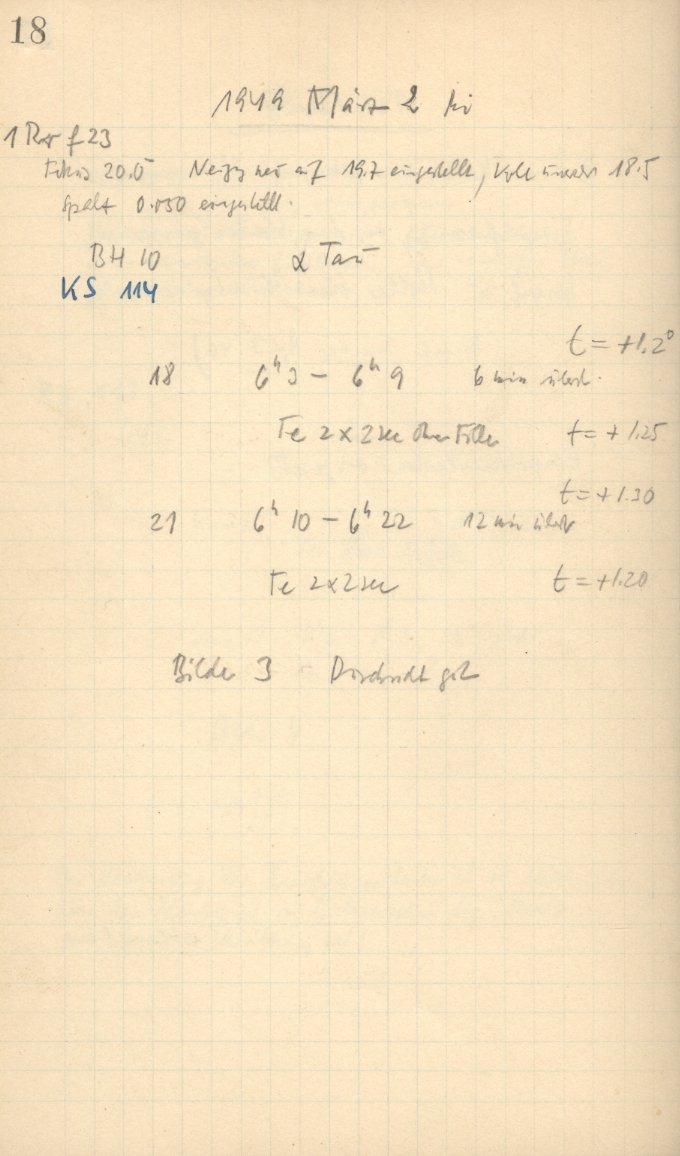 18
1949 März 2 Ki
1 Pr f 23
Fokus 20.0 Neigg neu auf 19.7 eingestellt, 18.5
Spalt 0.050 eingestellt.
BH 10 α Tau
KS 114
t = +1.2°
18 6h 3 – 6h 9 6 min
Fe 2 x 2 sec ohne Filter t = + 1.25
t = + 1.30
21 6h 10 – 6h 22 12 min
Fe 2 x 2 sec t = +1.20
Bilder 3 Durchsicht gut